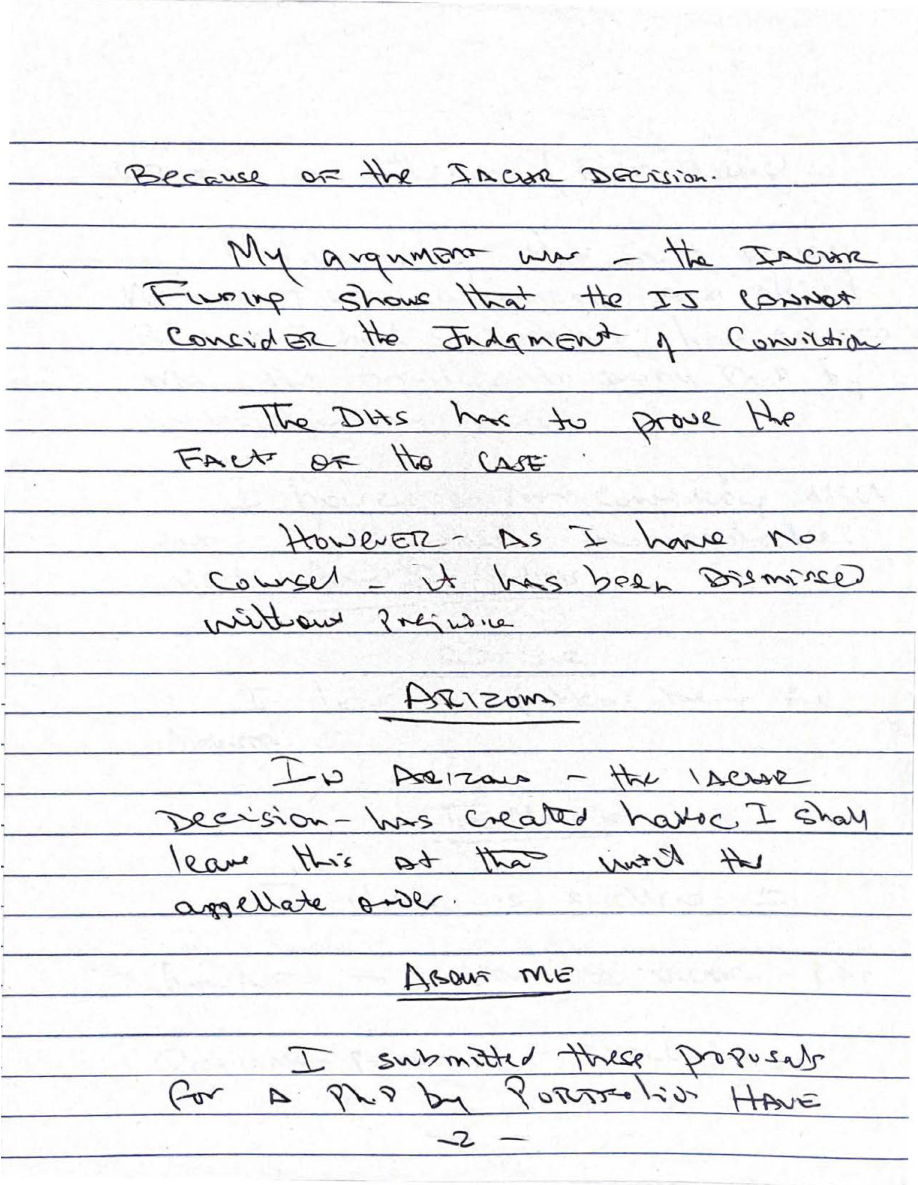 Because OF the IACHR DECISION.
My argument was - the IACHR
Finding shows that the IJ cannot
Consider the Judgment of Conviction
The DHS has to prove the
FACts OF the CASE.
However - As I have no
Counsel - it has been Dismissed
without Prejudice
ARIZONA
In Arizona - the IACHR
Decision - has created havoc, I shall
leave this at that until the
appellate order.
About ME
I submitted these proposals
for A PhD by Portfolio HAVE
-2-